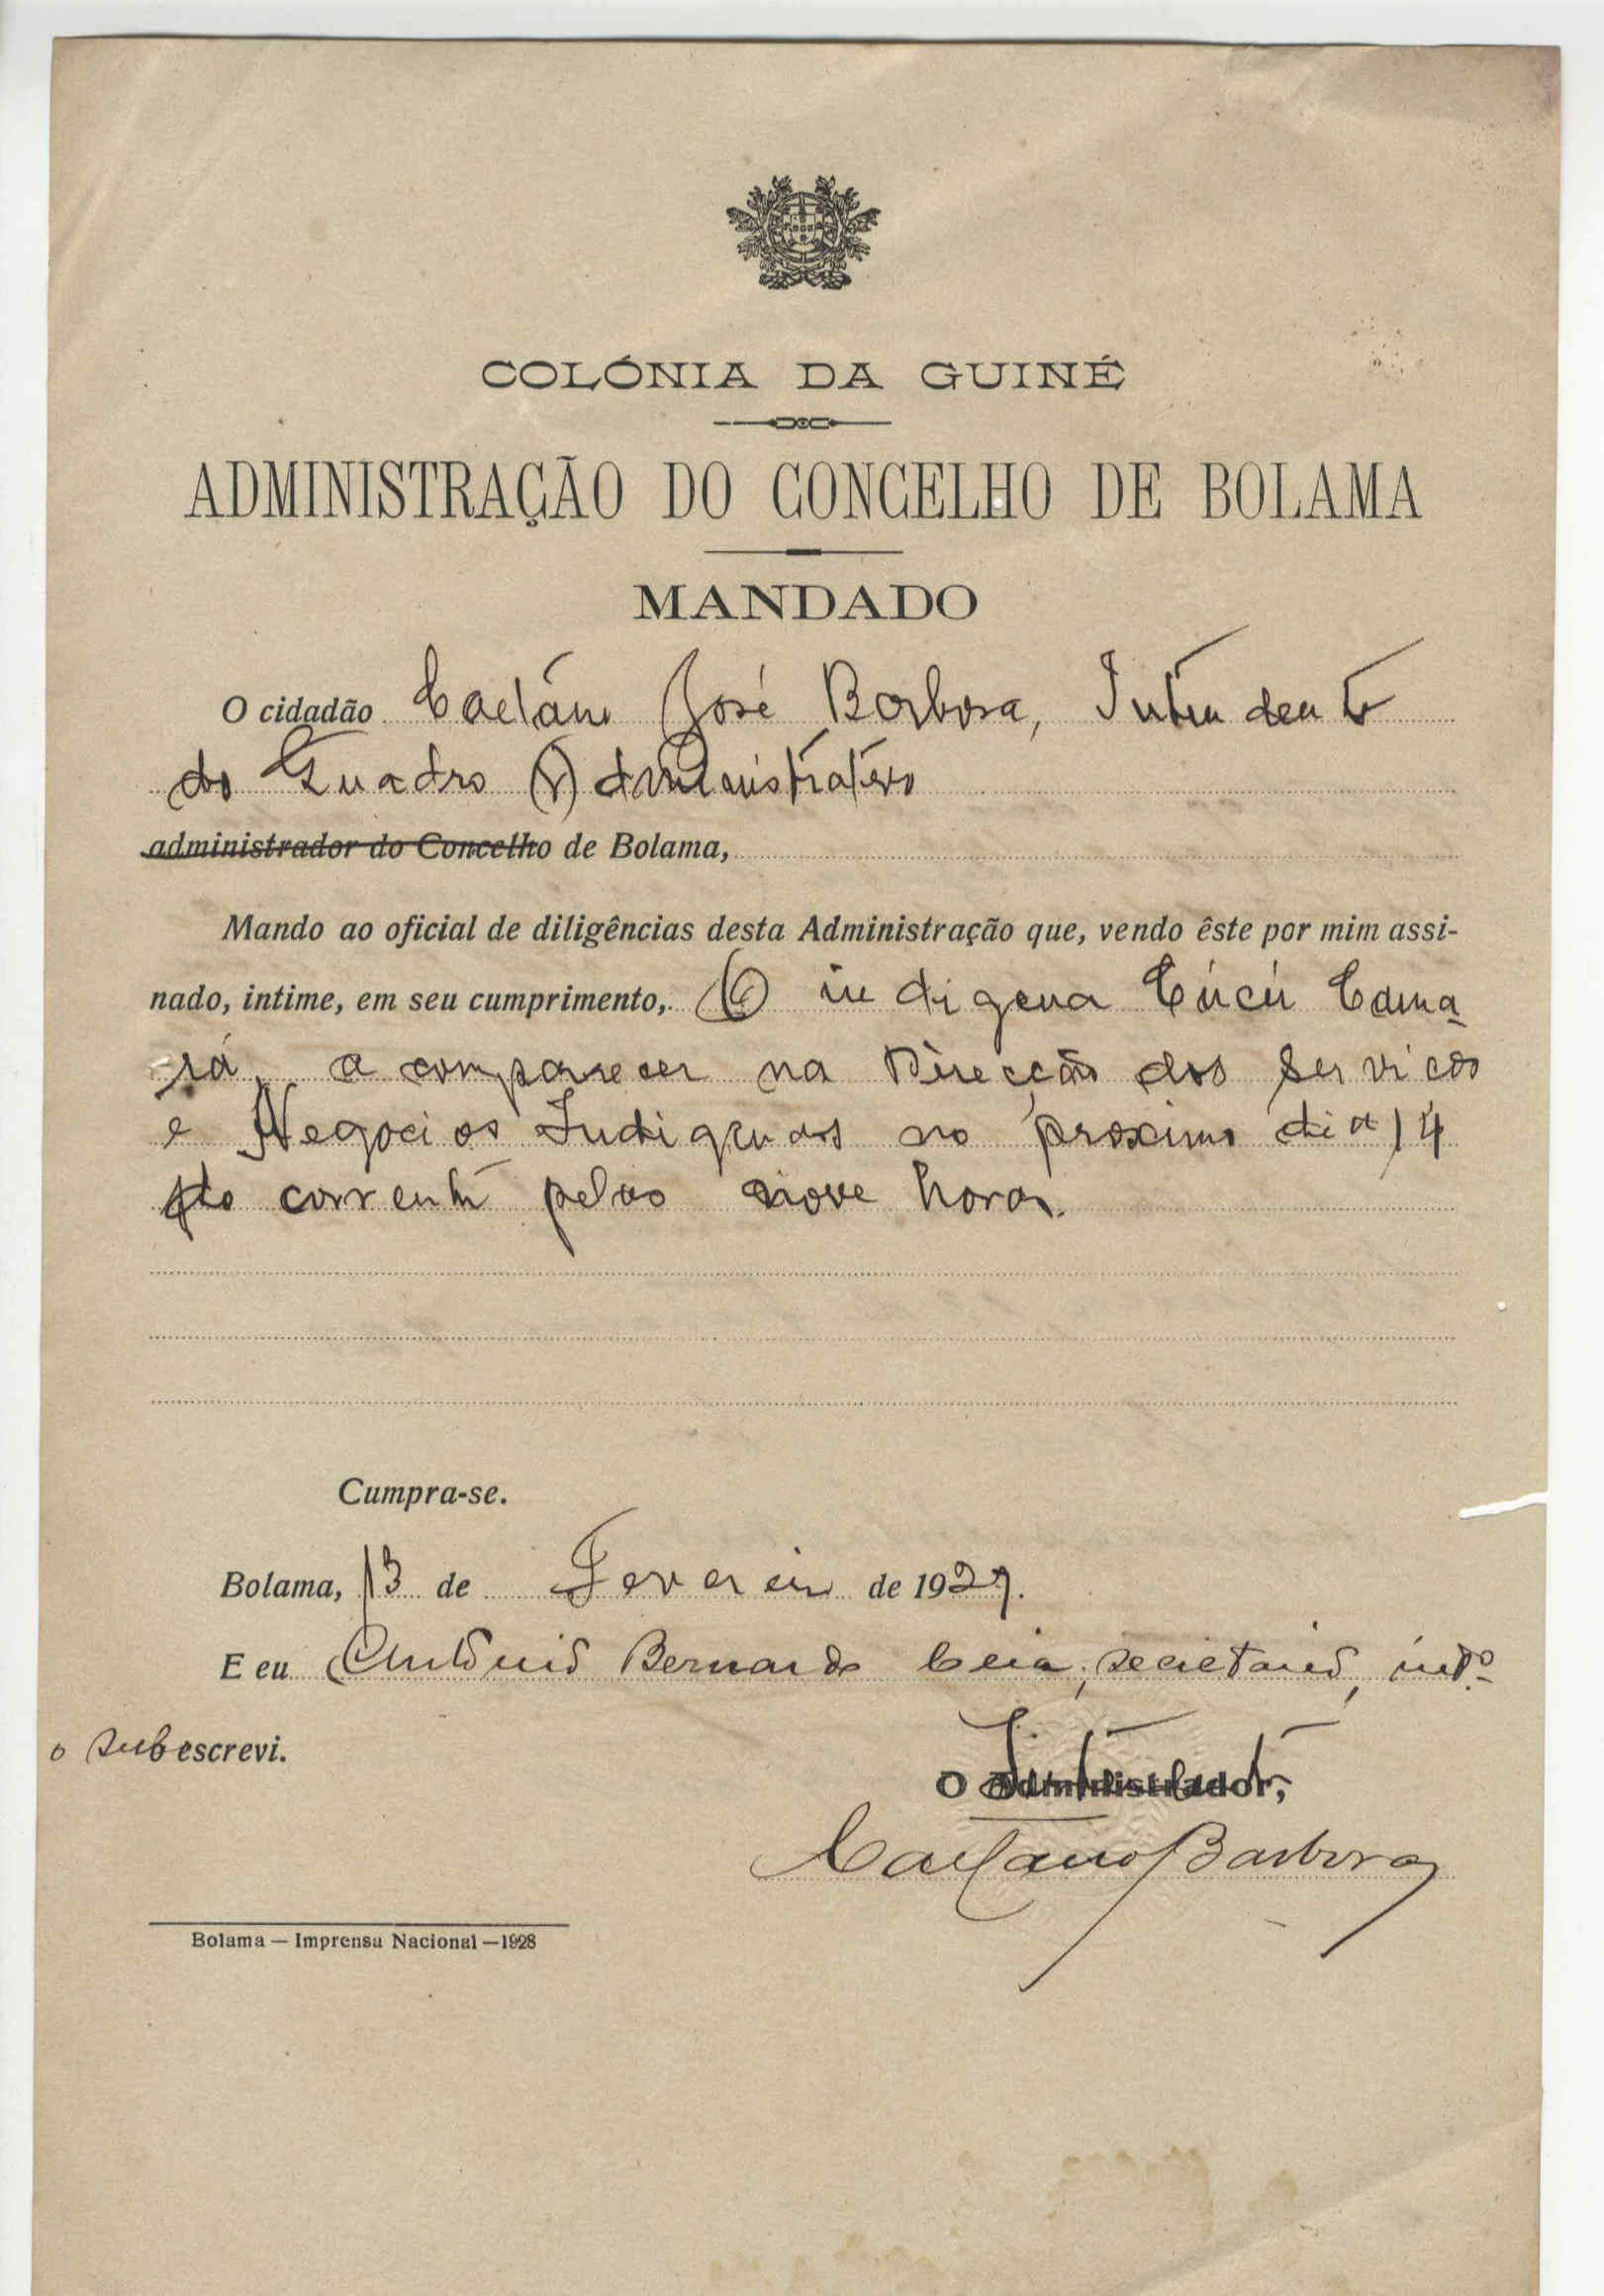 COLÓNIA DA GUINÉ
ADMINISTRAÇÃO DO CONCELHO DE BOLAMA
MANDADO
O cidadão Caetano José Barbosa, Intendente
do Quadro Administrativo
administrador do Concelho de Bolama,
Mando ao oficial de diligências desta Administração que, vendo êste por mim assi-
nado, intime, em seu cumprimento, O indigena Cúcú Cama-
rá, a comparecer na Direcção dos Serviços
e Negocios Indigenas no proximo dia 14
do corrente pelas nove horas.
Cumpra-se.
Bolama, 13 de Fevereiro de 1929.
E eu António Bernardo Ceia, secretario, intº
o subescrevi.
O Intendente
Administrador,
Caetano Barbosa
Bolama — Imprensa Nacional — 1928